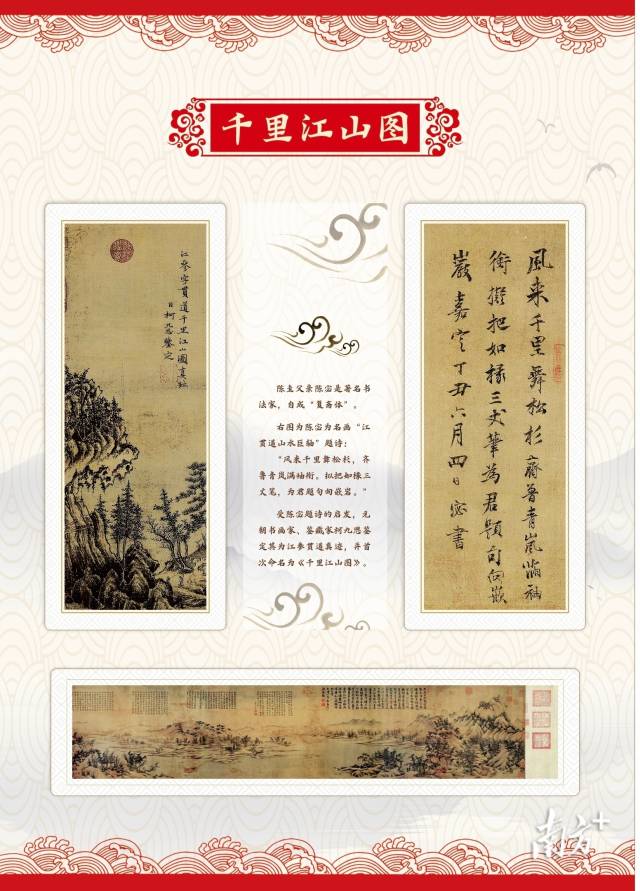 千里江山图
江参字貫道千里江山圖真跡
日柯九思鑒定
陈圭父亲陈宓是著名书
法家，自成“复斋体”。
右图为陈宓为名画“江
贯道山水巨轴”题诗：
“风来千里舞松杉，齐
鲁青岚满袖衔。拟把如椽三
丈笔，为君题句向嵌岩。”
受陈宓题诗的启发，元
朝书画家、鉴藏家柯九思鉴
定其为江参贯道真迹，并首
次命名为《千里江山图》。
風来千里舞松杉齊魯青嵐滿袖
銜擬把如椽三丈筆為君題句向嵌
巖嘉定丁丑六月四日宓書
南方+